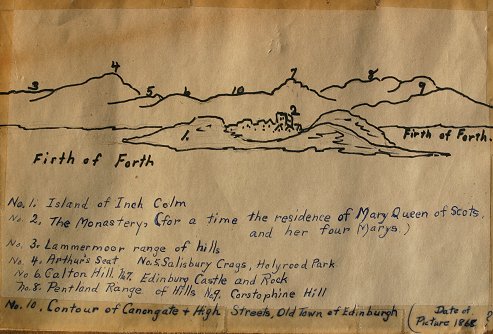 4
7
8
3
5
6
10
9
2
1.
Firth of Forth.
Firth of Forth
No. 1. Island of Inch Colm
No. 2. The Monastery, (for a time the residence of Mary Queen of Scots.
and her four Marys.)
No. 3. Lammermoor range of hills
No. 4. Arthur's Seat No. 5. Salisbury Crags, Holyrood Park
No 6. Calton Hill. No 7. Edinburg Castle and Rock
No. 8. Pentland Range of Hills No 9. Corstophine Hill
No. 10. Contour of Canongate + High Streets, Old Town of Edinburgh (Date of
Picture 1868